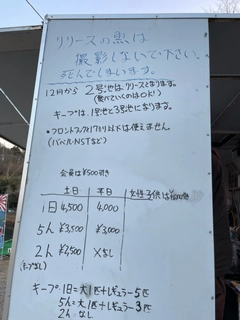 リリースの魚は
撮影しないで下さい。
死んでしまいます。
12月から 2号池はリリースとなります。
(食べていくのはOK!)
キープは、1号池と3号池になります。
・フロントフック17ミリ以下は使えません。
(バベル・NSTなど)
会員は¥500引き
土日 平日 女性子供は
1日 4,500 4,000
5h ¥3,500 ¥3,000
2h ¥2,500 ×なし
(キープなし)
キープ・1日=大1匹+レギュラー5匹
5h=大1匹+レギュラー3匹
2h なし